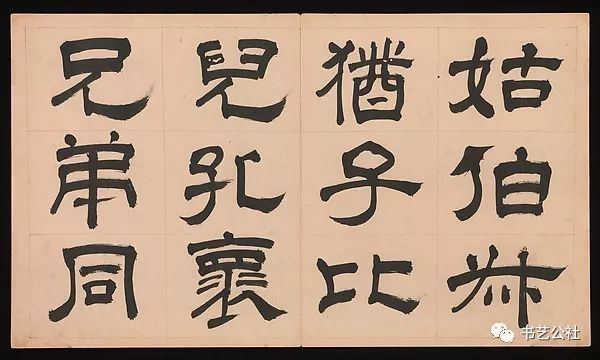 姑伯叔
猶子比
兒孔褱
兄弟同
书艺公社